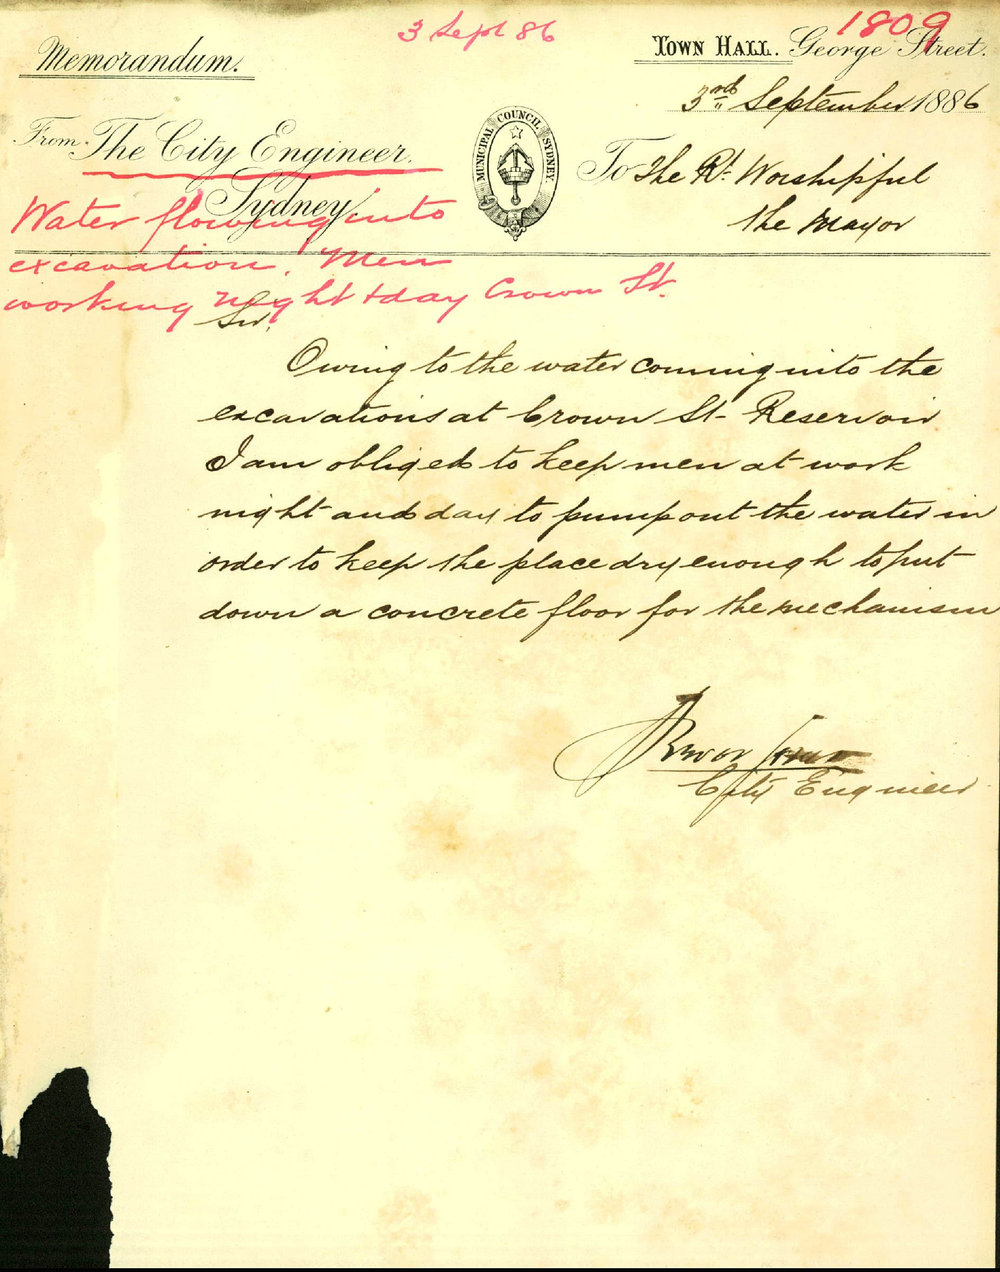 3 Sept 86
1809
Memorandum.
TOWN HALL. George Street.
3rd September 1886
From The City Engineer.
Sydney
MUNICIPAL COUNCIL SYDNEY.
To The Rt. Worshipful
the Mayor
Water flowing into
excavation. Men
working night & day Crown St.
Sir,
Owing to the water coming into the
excavations at Crown St. Reservoir
I am obliged to keep men at work
night and day to pump out the water in
order to keep the place dry enough to put
down a concrete floor for the mechanism
City Engineer